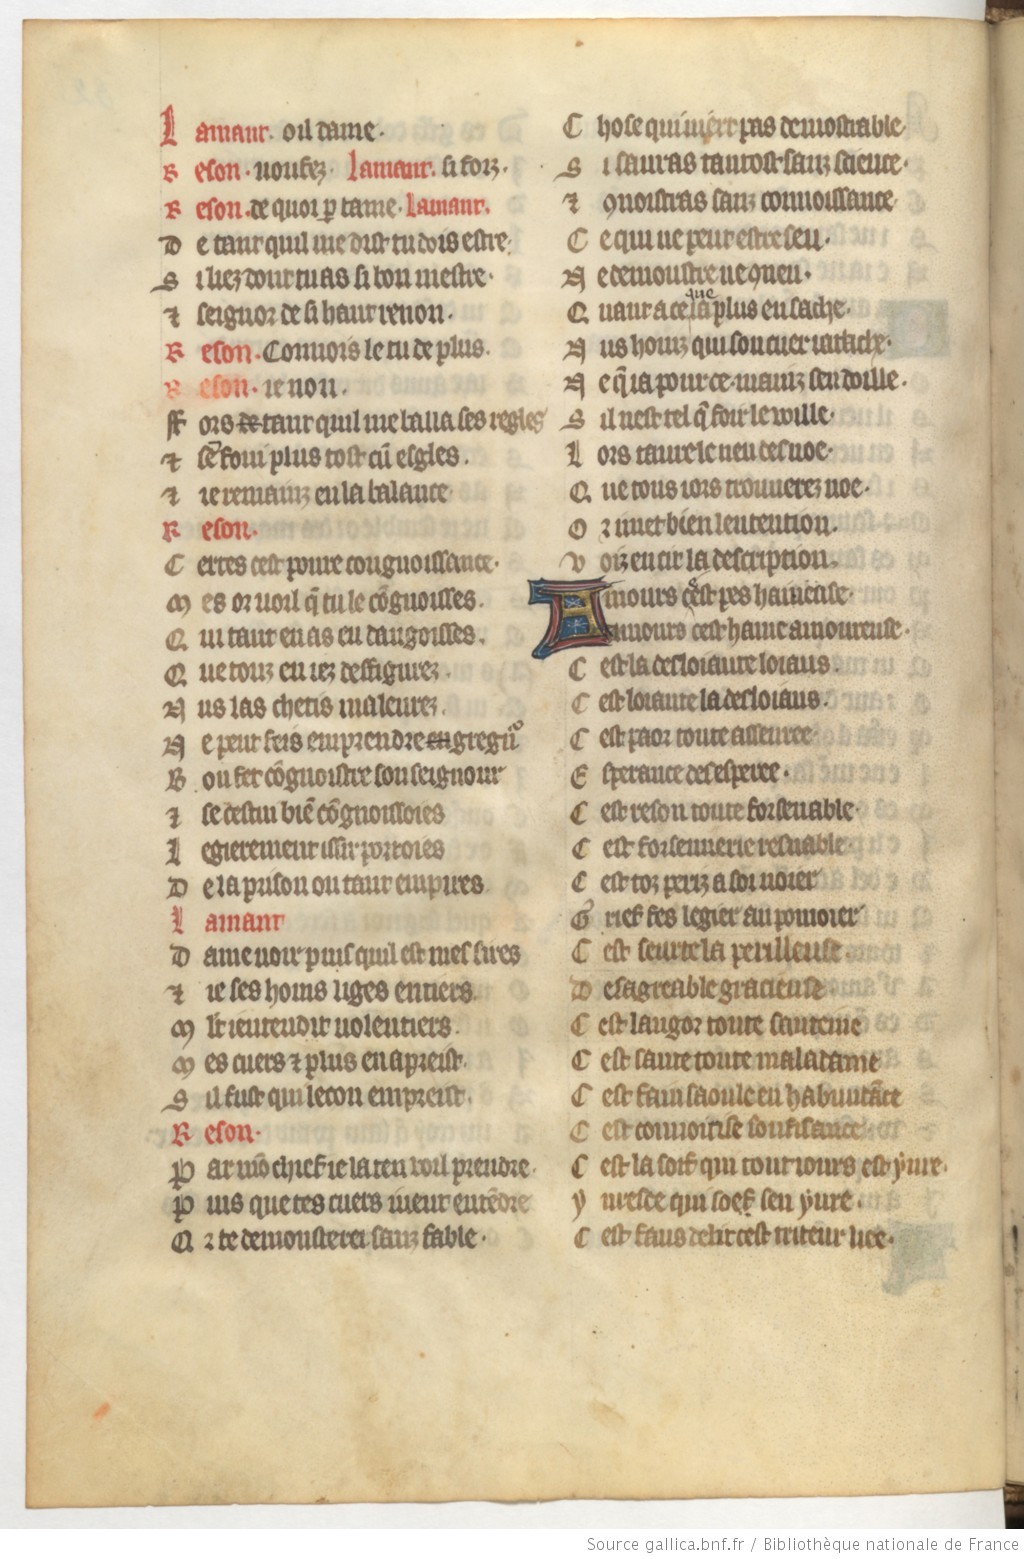 L amant. oil dame.
R eson. nonfez. Lamant. si foiz.
R eson. de quoi p dame. Lamant.
D e tant quil me dist tu dois estre
S iliez dont tu as si bon mestre.
⁊ seignor de si haut renon.
R eson. Connois le tu de plus.
R eson. ie non.
ff ors de tant quil me balla ses regles
⁊ sẽ foui plus tost cũ esgles.
⁊ ie remainz en la balance
R eson.
C ertes cest poure congnoissance.
M es or voil q̃ tu le cõgnoisses.
Q ui tant en as eu dangoisses.
Q ue touz en iez deffigurez.
N us las chetis maleurez.
N e peut feis emprendre en gregnᷣ
B ou fet cõgnoistre son seignour
⁊ se cestui biẽ cõgnoissoies
L egierement issir porroies
D e la prison ou tant empires
L amant
D ame voir puis quil est mes sires
⁊ ie ses homs liges entiers
M lt i entendit volentiers.
M es cuers ⁊ plus en apreist.
S il fust qui lecon empreist.
R eson.
P ar mõ chief ie la ten voil prendre.
P uis que tes cuers iueut entẽdre
Q r te demousterei sanz fable.
C hose qui niert pas demostrable
S i sauras tantost sanz science.
⁊ 9noistras sanz connoissance
C e qui ne peut estre seu.
N e demoustre ne 9neu.
Q uant a ce que ia plus en sache.
N us homz qui son cuer iatache.
N e q̃ ia pour ce mainz sen doille.
S il nest tel q̃ foir le wille.
L ors taure le neu desnoe.
Q ue tous iors trouuerez noe.
O r met bien lentention.
V oiz en cir la description.
A mours cest pes haineuse
A mours cest haine amoureuse.
C est la desloiaute loiaus.
C est loiaute la desloiaus.
C est paor toute asseuree
E sperance desesperee.
C est reson toute forsenable.
C est forsennerie resnable.
C est toz periz a soi noier
G rief fes legier au pomoier
C est seurte la perilleuse
D esagreable gracieuse
C est langor toute santeine
C est sante toute maladame
C est fain saoule en habundãce
C est conuoitise soufisance
C est la soif qui tout iours est yure.
y uresce qui soef sen yure.
C est faus delit cest tristeur liee.
Source gallica.bnf.fr / Bibliothèque nationale de France